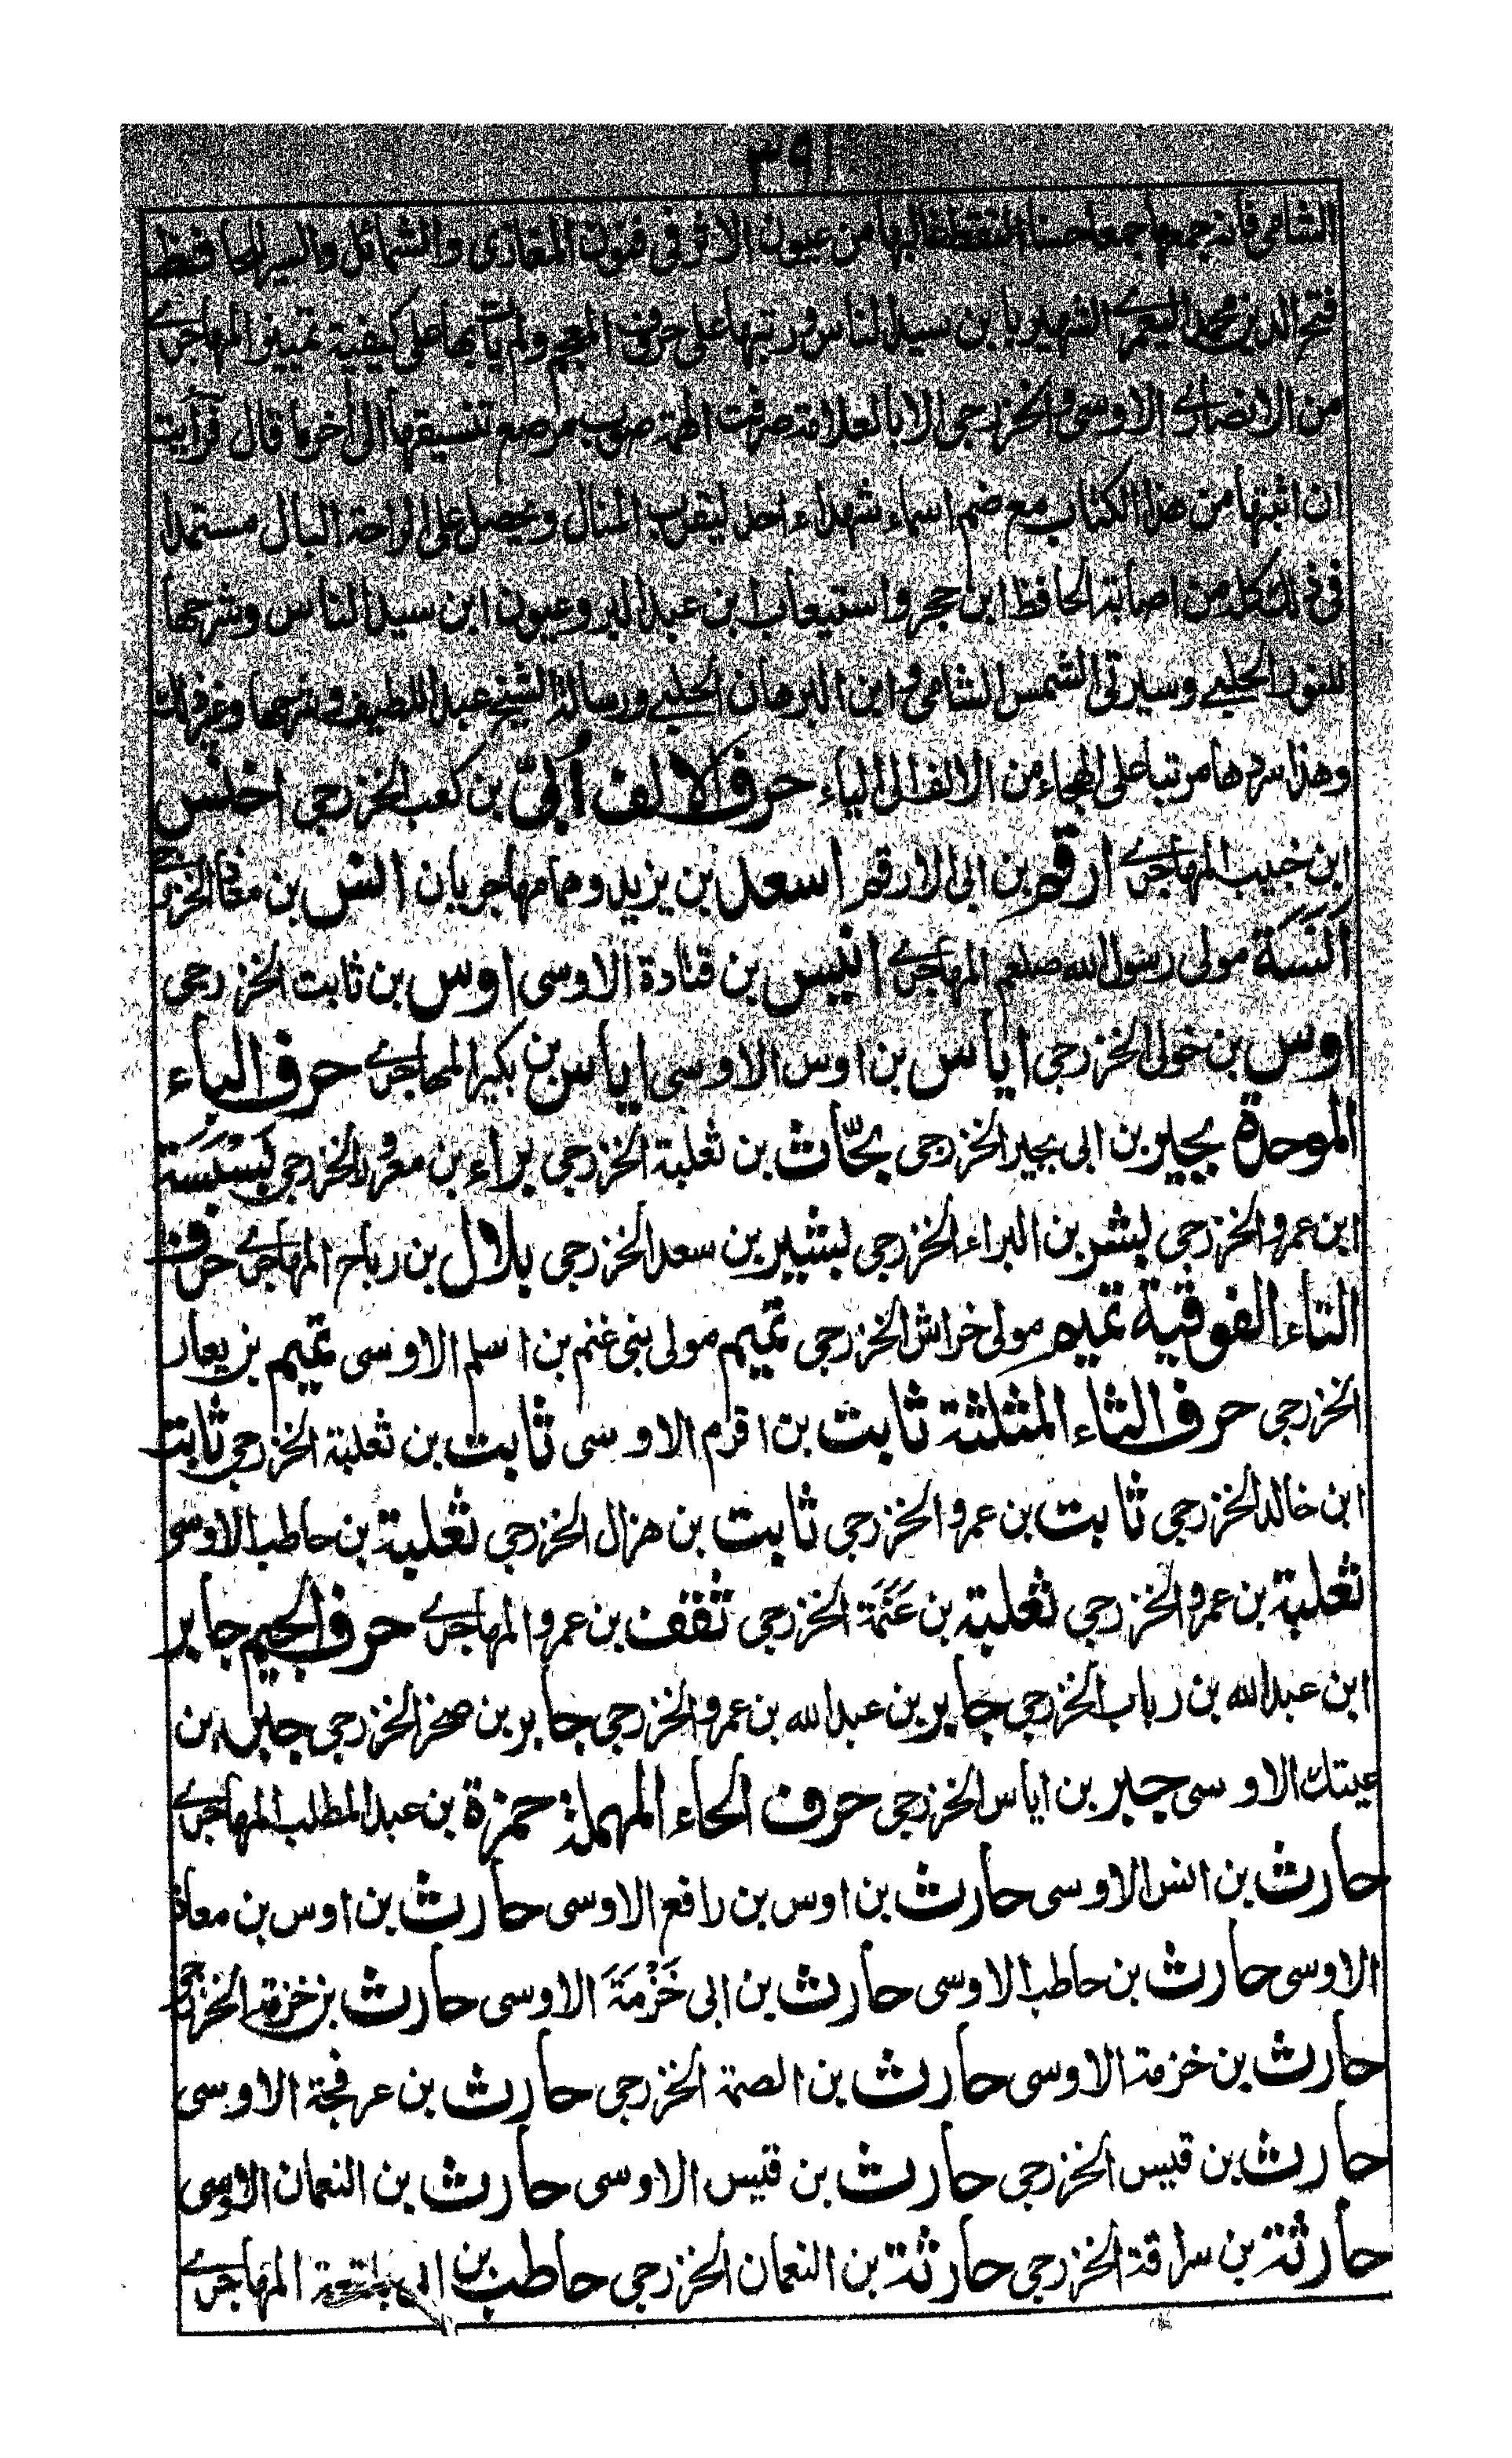 ٣٩١
الشامى فانه جمعها جمعا حسنا التقط غالبها من عيون الاثر فى فنون المغازى والشمائل والسير للحافظ
فتح الدين محمد اليعمرى الشهير بابن سيد الناس ورتبها على حروف المعجم ولم يات بها على كيفية تميز المهاجرى
من الانصارى الاوسى والخزرجى الا بالعلامة صرفت الهمة صوب موضع تنسيقها الى اخر ما قال فرأيت
ان اثبتها من هذا الكتاب مع ضم اسماء شهداء احد ليقرب المنال ويحصل على الراحة البال مستمدا
فى ذلك كله من اصابة الحافظ ابن حجر واستيعاب ابن عبد البر وعيون ابن سيد الناس وشرحها
للنور الحلبى وسيرتى الشمس الشامى وابن البرهان الحلبى ورسالة الشيخ عبد اللطيف وشرحها وغير ذلك
وهذا سردها مرتبا على الهجاء من الالف الى الياء حرف الالف اُبىّ بن كعب الخزرجى اخنس
ابن خبيب المهاجرى ارقم بن ابى الارقم اسعد بن يزيد وهما مهاجريان انس بن معاذ الخزرجى
اَنَسَة مولى رسول الله صلعم المهاجرى انيس بن قتادة الاوسى اوس بن ثابت الخزرجى
اوس بن خولى الخزرجى اياس بن اوس الاوسى اياس بن بكير المهاجرى حرف الباء
الموحدة بجير بن ابى بجير الخزرجى بحّاث بن ثعلبة الخزرجى براء بن معرور الخزرجى بَسْبَسَة
ابن عمرو الخزرجى بشر بن البراء الخزرجى بشير بن سعد الخزرجى بلال بن رباح المهاجرى حرف
التاء الفوقية تميم مولى خراش الخزرجى تميم مولى بنى غنم بن اسلم الاوسى تميم بن يعار
الخزرجى حرف الثاء المثلثة ثابت بن اقرم الاوسى ثابت بن ثعلبة الخزرجى ثابت
ابن خالد الخزرجى ثابت بن عمرو الخزرجى ثابت بن هزال الخزرجى ثعلبة بن حاطب الاوسى
ثعلبة بن عمرو الخزرجى ثعلبة بن عَنَمَة الخزرجى ثقف بن عمرو المهاجرى حرف الجيم جابر
ابن عبد الله بن رياب الخزرجى جابر بن عبد الله بن عمرو الخزرجى جابر بن صخر الخزرجى جبر بن
عيتك الاوسى جبير بن اياس الخزرجى حرف الحاء المهملة حمزة بن عبد المطلب المهاجرى
حارث بن انس الاوسى حارث بن اوس بن رافع الاوسى حارث بن اوس بن معاذ
الاوسى حارث بن حاطب الاوسى حارث بن ابى خَزْمَةَ الاوسى حارث بن خزمة الخزرجى
حارث بن خزمة الاوسى حارث بن الصمة الخزرجى حارث بن عرفجة الاوسى
حارث بن قيس الخزرجى حارث بن قيس الاوسى حارث بن النعمان الاوسى
حارثة بن سراقة الخزرجى حارثة بن النعمان الخزرجى حاطب بن ابى بلتعة المهاجرى